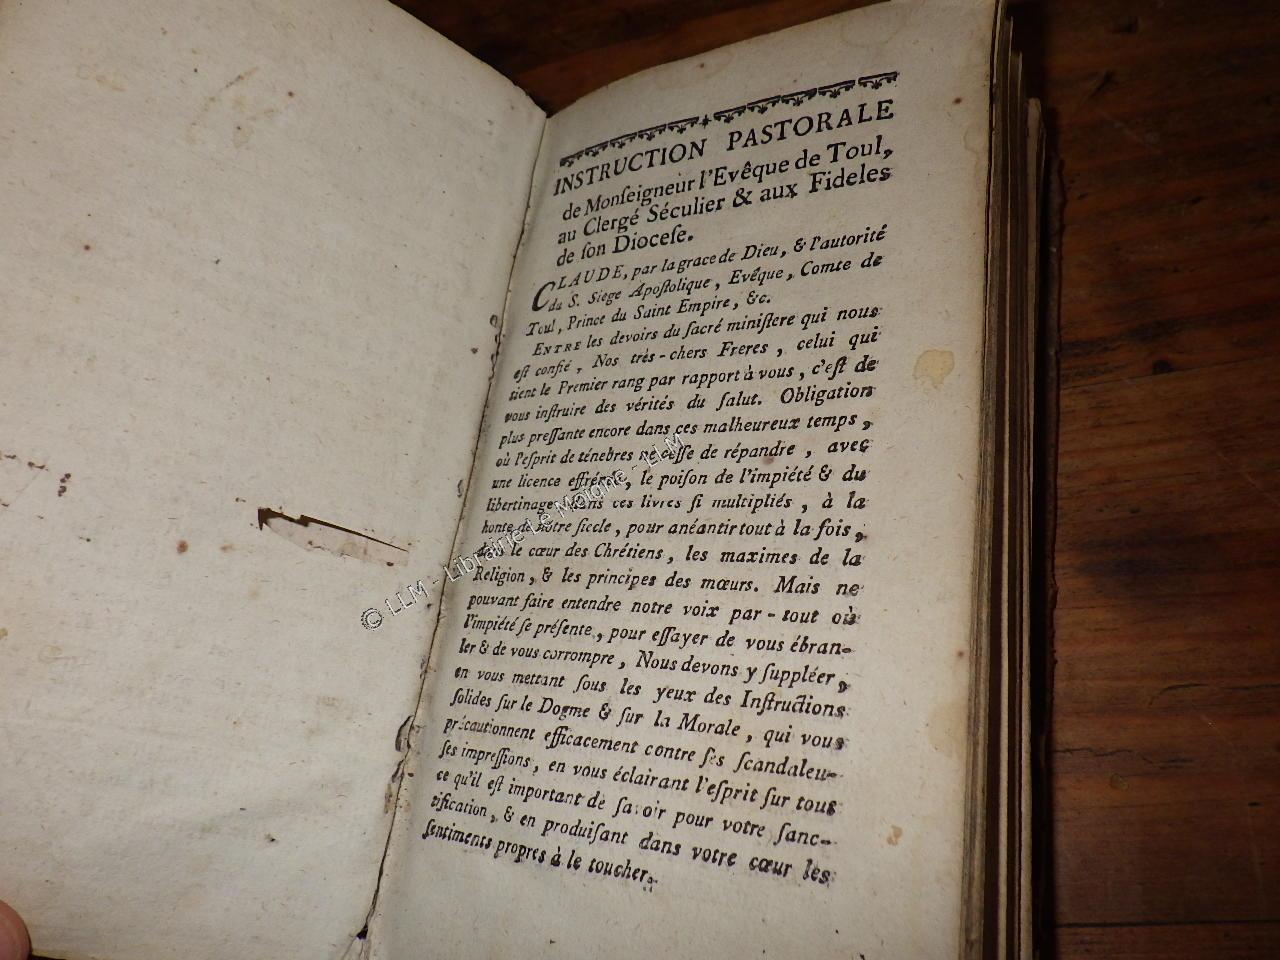 INSTRUCTION PASTORALE
de Monſeigneur l'Evêque de Toul,
au Clergé Séculier & aux Fideles
de ſon Dioceſe.
CLAUDE, par la grace de Dieu, & l'autorité
du S. Siege Apoſtolique, Evêque, Comte de
Toul, Prince du Saint Empire, &c.
ENTRE les devoirs du ſacré miniſtere qui nous
eſt confié, Nos très-chers Freres, celui qui
tient le Premier rang par rapport à vous, c'eſt de
vous inſtruire des vérités du ſalut. Obligation
plus preſſante encore dans ces malheureux temps,
où l'eſprit de ténebres ne ceſſe de répandre, avec
une licence effrénée, le poiſon de l'impiété & du
libertinage dans ces livres ſi multipliés, à la
honte de notre ſiecle, pour anéantir tout à la fois,
dans le cœur des Chrétiens, les maximes de la
Religion, & les principes des mœurs. Mais ne
pouvant faire entendre notre voix par-tout où
l'impiété ſe préſente, pour eſſayer de vous ébran-
ler & de vous corrompre, Nous devons y ſuppléer,
en vous mettant ſous les yeux des Inſtructions
ſolides ſur le Dogme & ſur la Morale, qui vous
précautionnent efficacement contre ſes ſcandaleu-
ſes impreſſions, en vous éclairant l'eſprit ſur tout
ce qu'il eſt important de ſavoir pour votre ſanc-
tification, & en produiſant dans votre cœur les
ſentiments propres à le toucher.
© LLM - Librairie Le Moigne - LLM